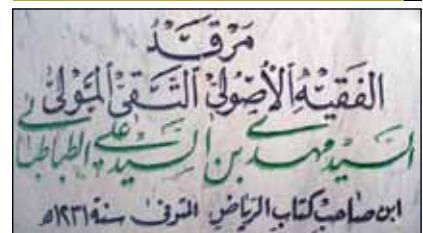 مرقد
الفقيه الأصولي التقي المولى
السيد مهدي بن السيد علي الطباطبائي
ابن صاحب كتاب الرياض المتوفى سنة ١٢٣١هـ